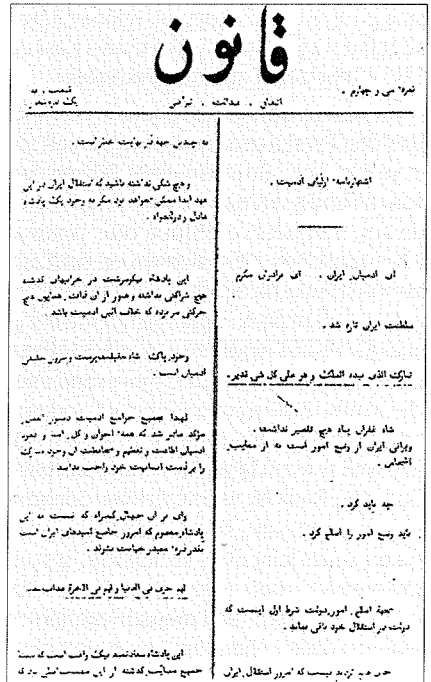 قانون
نمره سی و چهارم .
اتفاق . عدالت . ترقی
قیمت .
یک ذره شعور
اشتهارنامه اولیای آدمیت .
ای آدمیان ایران . ای برادران مکرم
سلطنت ایران تازه شد .
تبارک الذی بیده الملک و هو علی کل شی قدیر .
شاه غفران پناه هیچ تقصیر نداشت .
ویرانی ایران از وضع امور است نه از معایب
اشخاص .
چه باید کرد .
باید وضع امور را اصلاح کرد .
بجهة اصلاح امور دولت شرط اول اینست که
دولت در استقلال خود باقی بماند .
هیچ تردید نیست که امروز استقلال ایران
به چندین جهة در نهایت خطر است .
و هیچ شکی نداشته باشید که استقلال ایران در این
عهد ابدا ممکن نخواهد بود مگر به وجود یک پادشاه
عادل و درلتخواه .
این پادشاه نیکوسرشت در خرابیهای گذشته
هیچ شراکتی نداشته و هنوز از آن ذات همایون هیچ
حرکتی سر نزده که خلاف آئین آدمیت باشد .
وجود پاک شاه حقیقت پرست و سرور حقیقی
آدمیان است .
لهذا بجمیع جوامع آدمیت دستور
مؤکد صادر شد که همه اخوان و کل امنا و عموم
آدمیان اطاعت و تعظیم و محافظت آن وجود مبارک
را بر ذمت انسانیت خود واجب بدانند .
وای بر آن جهال گمراه که نسبت به این
پادشاه معصوم که امروز جامع امیدهای ایران است
بقدر ذره مصدر خیانت بشوند .
لهم خزی فی الدنیا و لهم فی الآخرة عذاب
این پادشاه سعادتمند نیک راغب است که
جمیع مصائب گذشته از این